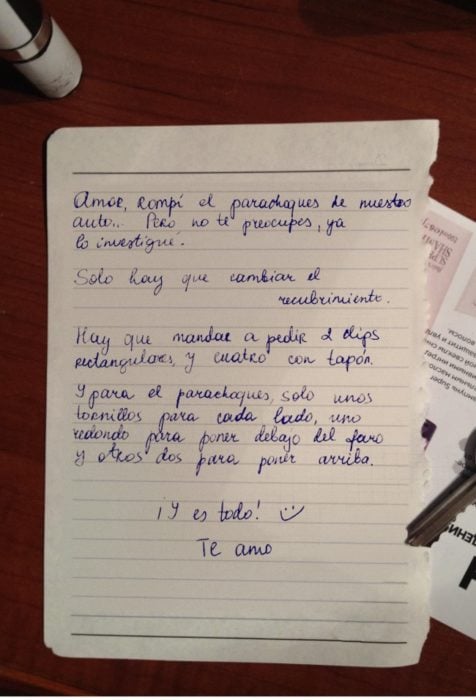 Amor, rompí el parachoques de nuestro
auto... Pero no te preocupes, ya
lo investigué.
Solo hay que cambiar el
recubrimiento.
Hay que mandar a pedir 2 clips
rectangulares, y cuatro con tapón.
Y para el parachoques, solo unos
tornillos para cada lado, uno
redondo para poner debajo del faro
y otros dos para poner arriba.
¡Y es todo!
Te amo